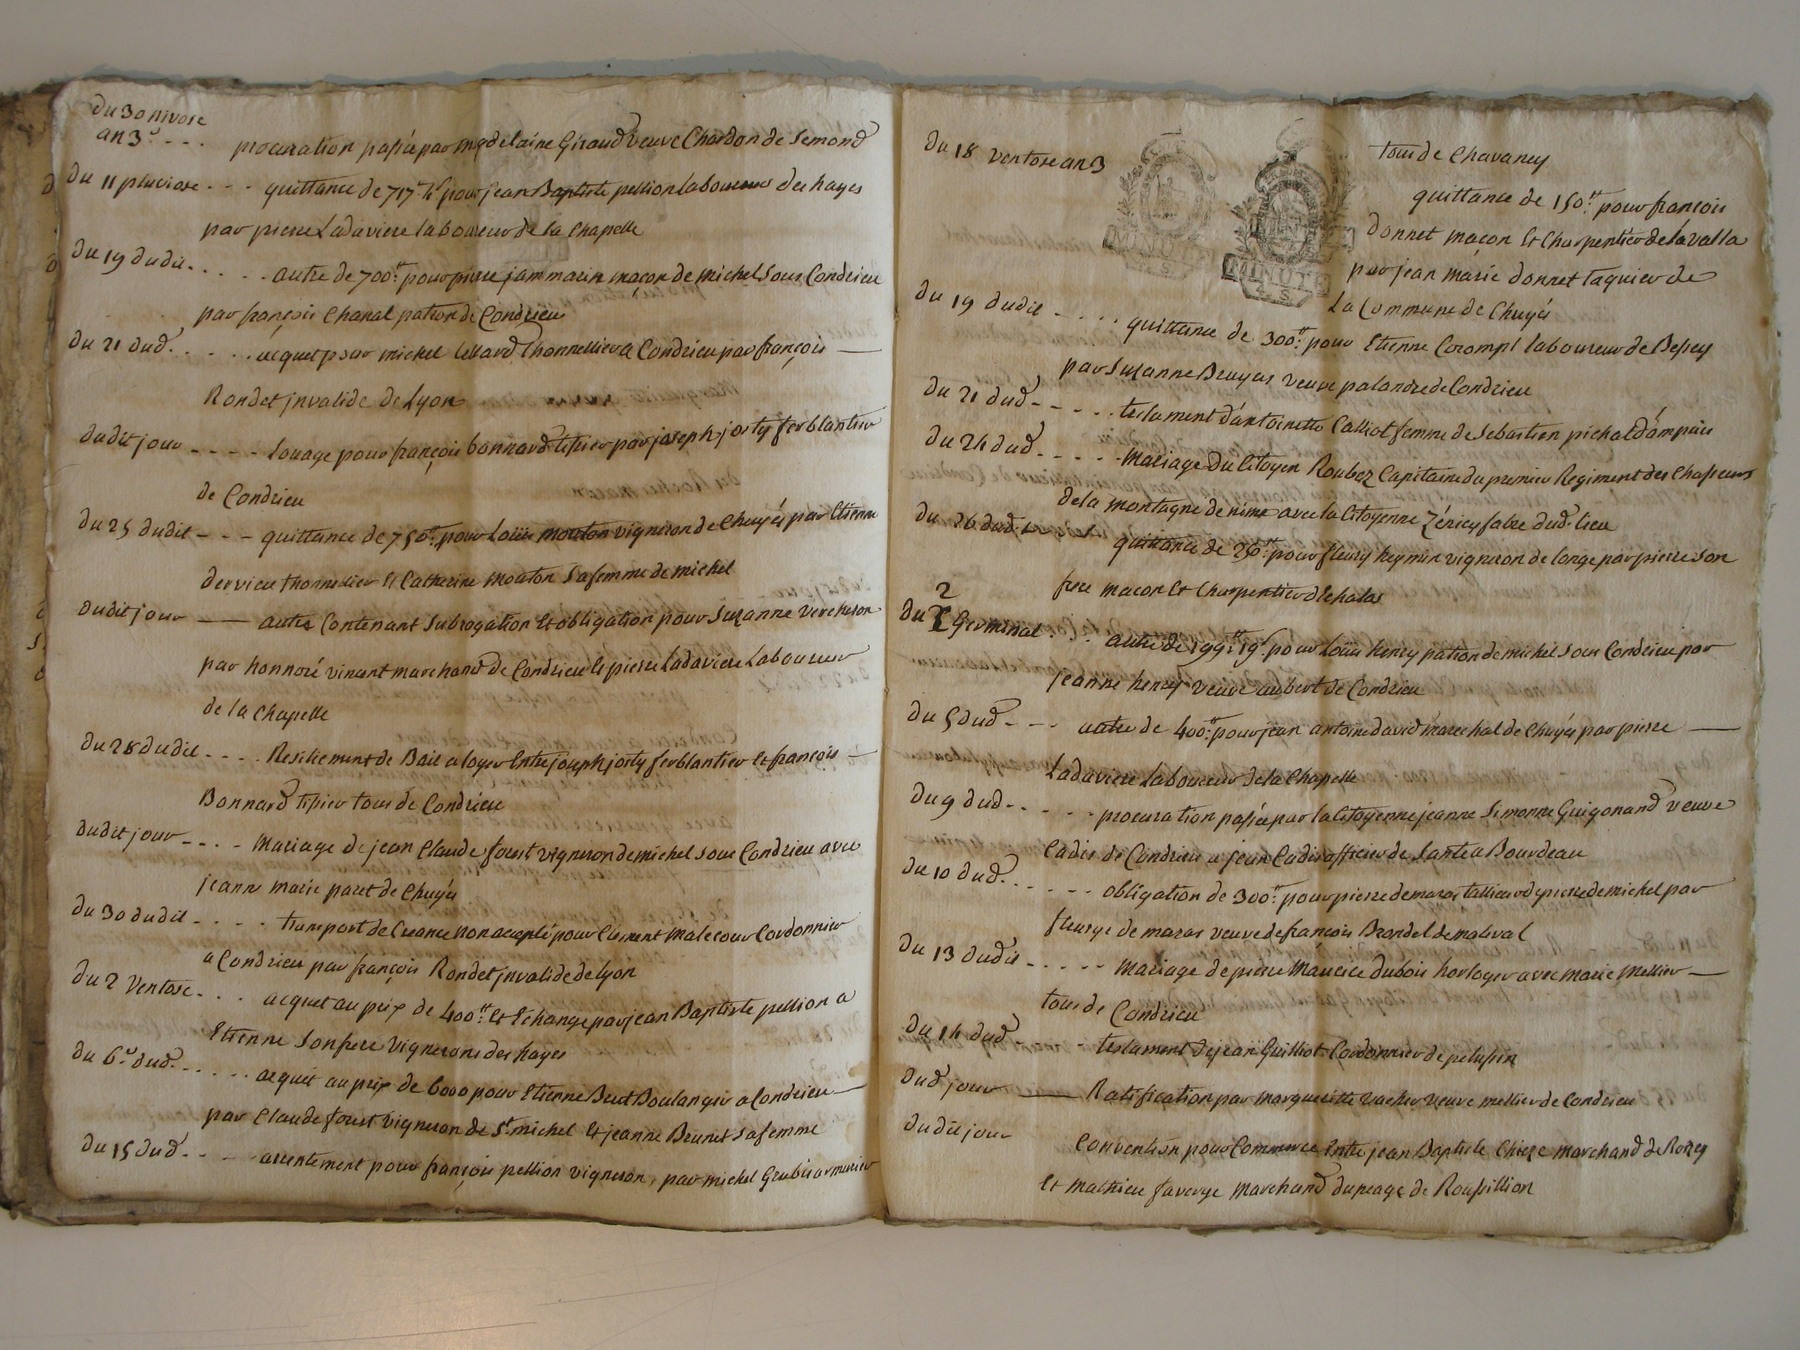 du 30 nivose
an 3e - - - procuration passée par magdelaine Giraud veuve Chardon de Semond
du 11 pluviose - - - quittance de 717 lt pour jean Baptiste pellion laboureur des hayes
par pierre Ladaviere laboureur de la Chapelle
du 19 dudit - - - - - autre de 700lt pour pierre jammarin maçon de michel sous Condrieu
par françois Chanal patron de Condrieu
du 21 dud. - - - - - acquet pour michel thonnellier a Condrieu par françois —
Rondet jnvalide de Lyon
dudit jour - - - - - louage pour françois bonnard tissier par joseph jorty ferblantier
de Condrieu
du 25 dudit - - - quittance de 750lt pour Loüis mouton vigneron de Chuyés par Etienne
dervieu thonnelier et Catherine mouton sa femme de michel
dudit jour —— autre Contenant Subrogation et obligation pour Suzanne vercheron
par honnoré vincent marchand de Condrieu et pierre Ladaviere Laboureur
de la Chapelle
du 28 dudit - - - - Resiliement de Bail a loyer Entre joseph jorty ferblantier et françois —
Bonnard tissier tous de Condrieu
dudit jour - - - - Mariage de jean Claude forest vigneron de michel sous Condrieu avec
jeanne marie paret de Chuyés
du 30 dudit - - - - transport de Creance non accepté pour Clement malecour Cordonnier
a Condrieu par françois Rondet jnvalide de Lyon
du 2 Ventose - - - acquet au prix de 400lt et Echange par jean Baptiste pellion a
Etienne son frere vignerons des hayes
du 6e dud. - - - - - acquet au prix de 6000 pour Etienne Boulanger a Condrieu —
par Claude forest vigneron de St michel et jeanne Brunet sa femme
du 15 dud - - - - pour françois pellion vigneron, par michel armurier
du 18 ventose an 3
tous de Chavaney
MINUTE
MINUTE
4. S.
quittance de 150lt pour françois
donnet maçon et Charpentier de la valla
par jean marie donnet taquier de
La Commune de Chuyés
du 19 dudit - - - - quittance de 300lt pour Etienne Corompt laboureur de Bessey
par Suzanne Bruyas veuve palandre de Condrieu
du 21 dud - - - - - testament d'antoinette Calliot femme de Sebastien pichal d'ampuis
du 24 dud - - - - - mariage du Citoyen Roubez Capitaine du premier Regiment des Chasseurs
de la montagne de nime avec la Citoyenne fabre dud. lieu
du 26 dud. quittance de 250lt pour fleury heymin vigneron de longe par pierre son
frere maçon et Charpentier d'Echalas
2
du Germinal - - autre de 199lt 19s pour Loüis henry patron de michel sous Condrieu par
jeanne henry veuve aubert de Condrieu
du 5 dud - - - autre de 400lt pour jean antoine david marechal de Chuyés par pierre —
Ladaviere laboureur de la Chapelle
du 9 dud - - - - - procuration passée par la Citoyenne jeanne Simonne Guigonand veuve
Cadis de Condrieu a jean Cadis officier de Santé a Bourdeau
du 10 dud - - - - - - obligation de 300lt pour pierre demaras tallieur de pierre de michel par
fleurye de maras veuve de françois Brondel de malval
du 13 dudit - - - - - mariage de pierre Maurice dubois horloger avec marie mellier —
tous de Condrieu
du 14 dud - - - - testament de jean Guilliot Cordonnier de pelussin
dud jour —— Ratification par marguerite vacher veuve mellier de Condrieu
dudit jour Convention pour Commerce Entre jean Baptiste Chieze marchand de Roizey
Et mathieu faverge marchand du peage de Roussillion